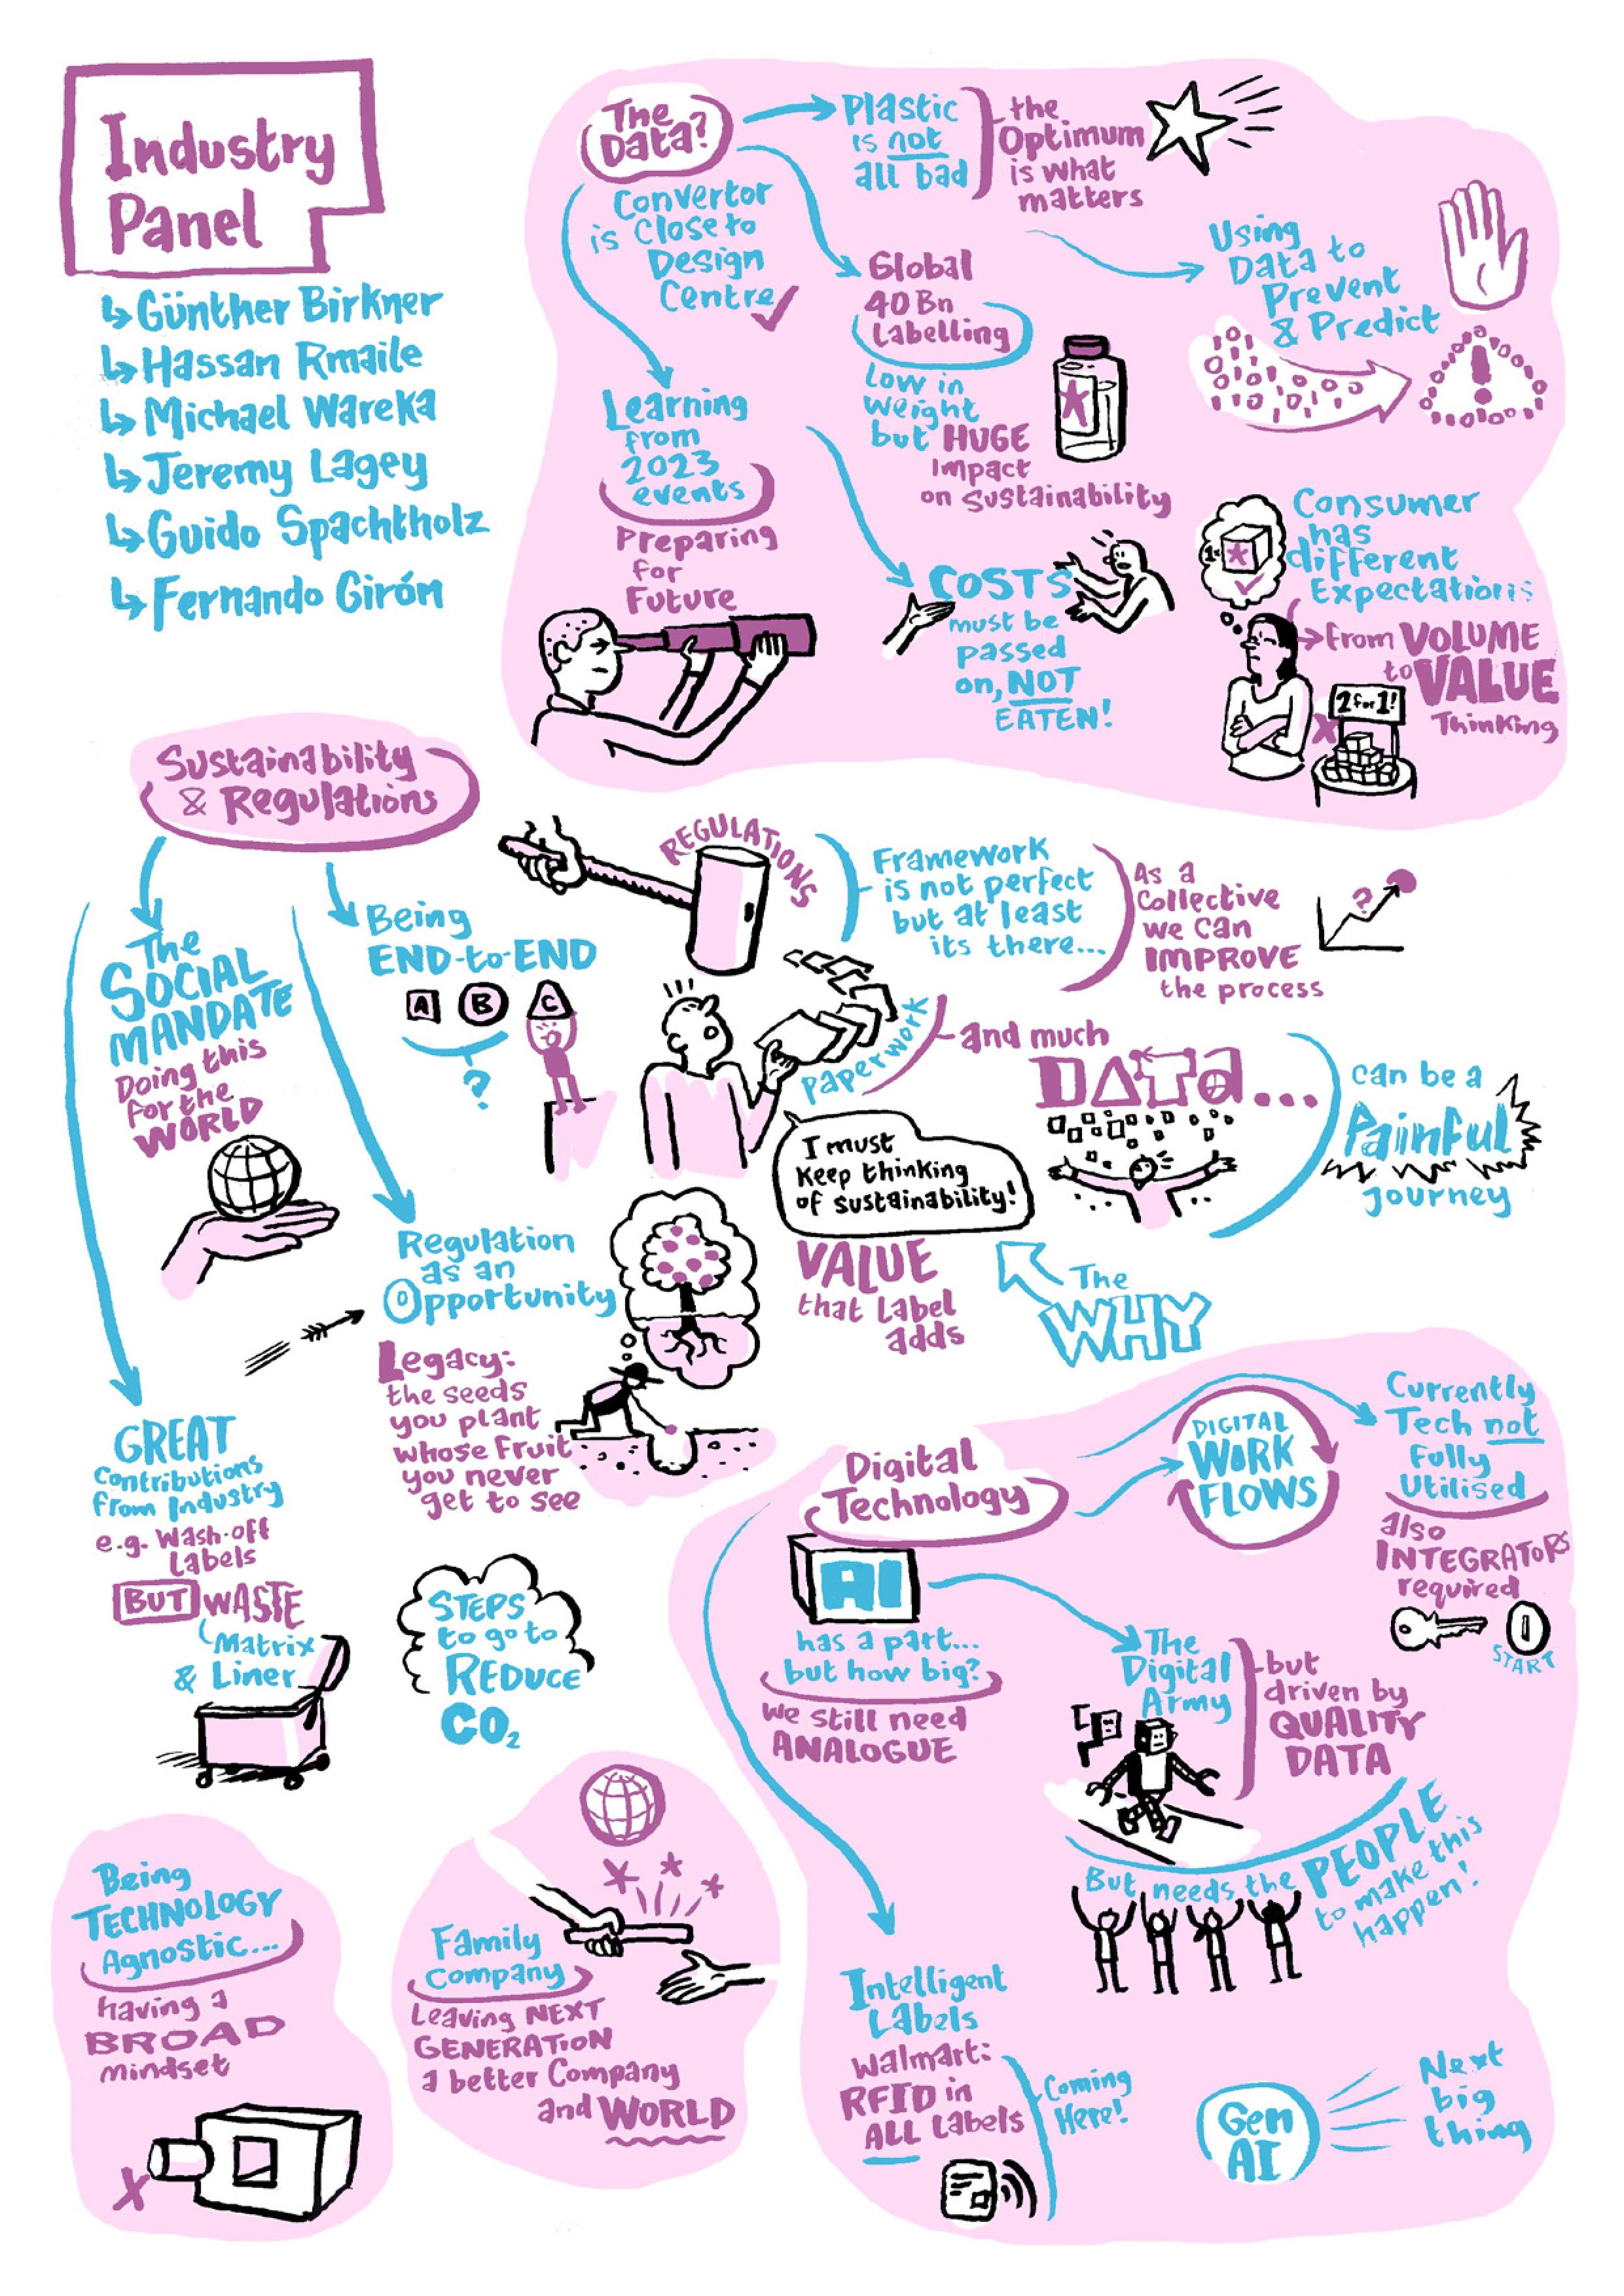 Industry
Panel
↳ Günther Birkner
↳ Hassan Rmaile
↳ Michael Wareka
↳ Jeremy Lagey
↳ Guido Spachtholz
↳ Fernando Girón
The
Data?
Convertor
is close to
Design
Centre
Plastic
is not
all bad
the
Optimum
is what
matters
Global
40 Bn
Labelling
Low in
weight
but HUGE
impact
on Sustainability
Using
Data to
Prevent
& Predict
Learning
from
2023
events
Preparing
for
Future
COSTS
must be
passed
on, NOT
EATEN!
Consumer
has
different
Expectations
1x
from VOLUME
to VALUE
Thinking
2 for 1!
Sustainability
& Regulations
The
SOCIAL
MANDATE
Doing this
for the
WORLD
Being
END-to-END
A B C
?
REGULATIONS
Framework
is not perfect
but at least
its there...
As a
Collective
we can
IMPROVE
the process
?
Paperwork
and much
DATA...
can be a
Painful
journey
I must
keep thinking
of sustainability!
VALUE
that label
adds
The
WHY
Regulation
as an
Opportunity
Legacy:
the seeds
you plant
whose fruit
you never
get to see
GREAT
contributions
from Industry
e.g. Wash-off
Labels
BUT WASTE
Matrix
& Liner
STEPS
to go to
REDUCE
CO2
Digital
Technology
DIGITAL
WORK
FLOWS
Currently
Tech not
Fully
Utilised
also
INTEGRATORS
required
START
AI
has a part...
but how big?
We still need
ANALOGUE
The
Digital
Army
but
driven by
QUALITY
DATA
But needs the PEOPLE
to make this
happen!
Intelligent
Labels
Walmart:
RFID in
ALL Labels
Coming
Here!
Gen
AI
Next
big
thing
Being
TECHNOLOGY
Agnostic...
having a
BROAD
mindset
Family
Company
Leaving NEXT
GENERATION
a better Company
and WORLD